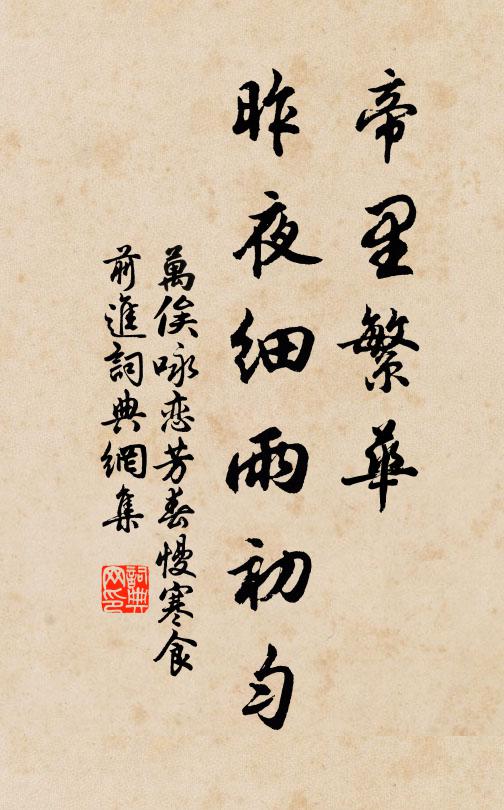 帝里繁華
昨夜細雨初勻
萬俟咏戀芳春慢寒食
前進詞典網集
詞典
网印